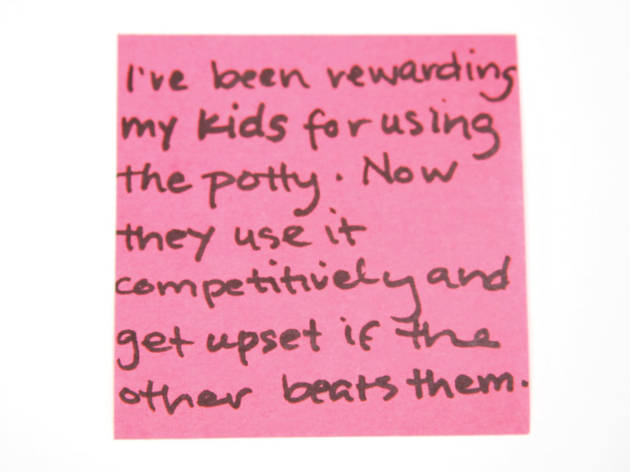 I've been rewarding
my kids for using
the potty. Now
they use it
competitively and
get upset if the
other beats them.